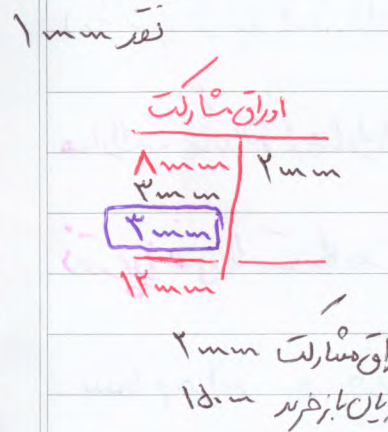 نقد ۱mm
اوراق مشارکت
۸mm ۲mm
۳mm
۳mm
۱۲mm
اق مشارکت ۲mm
یان بازخرید ۱۵۰m